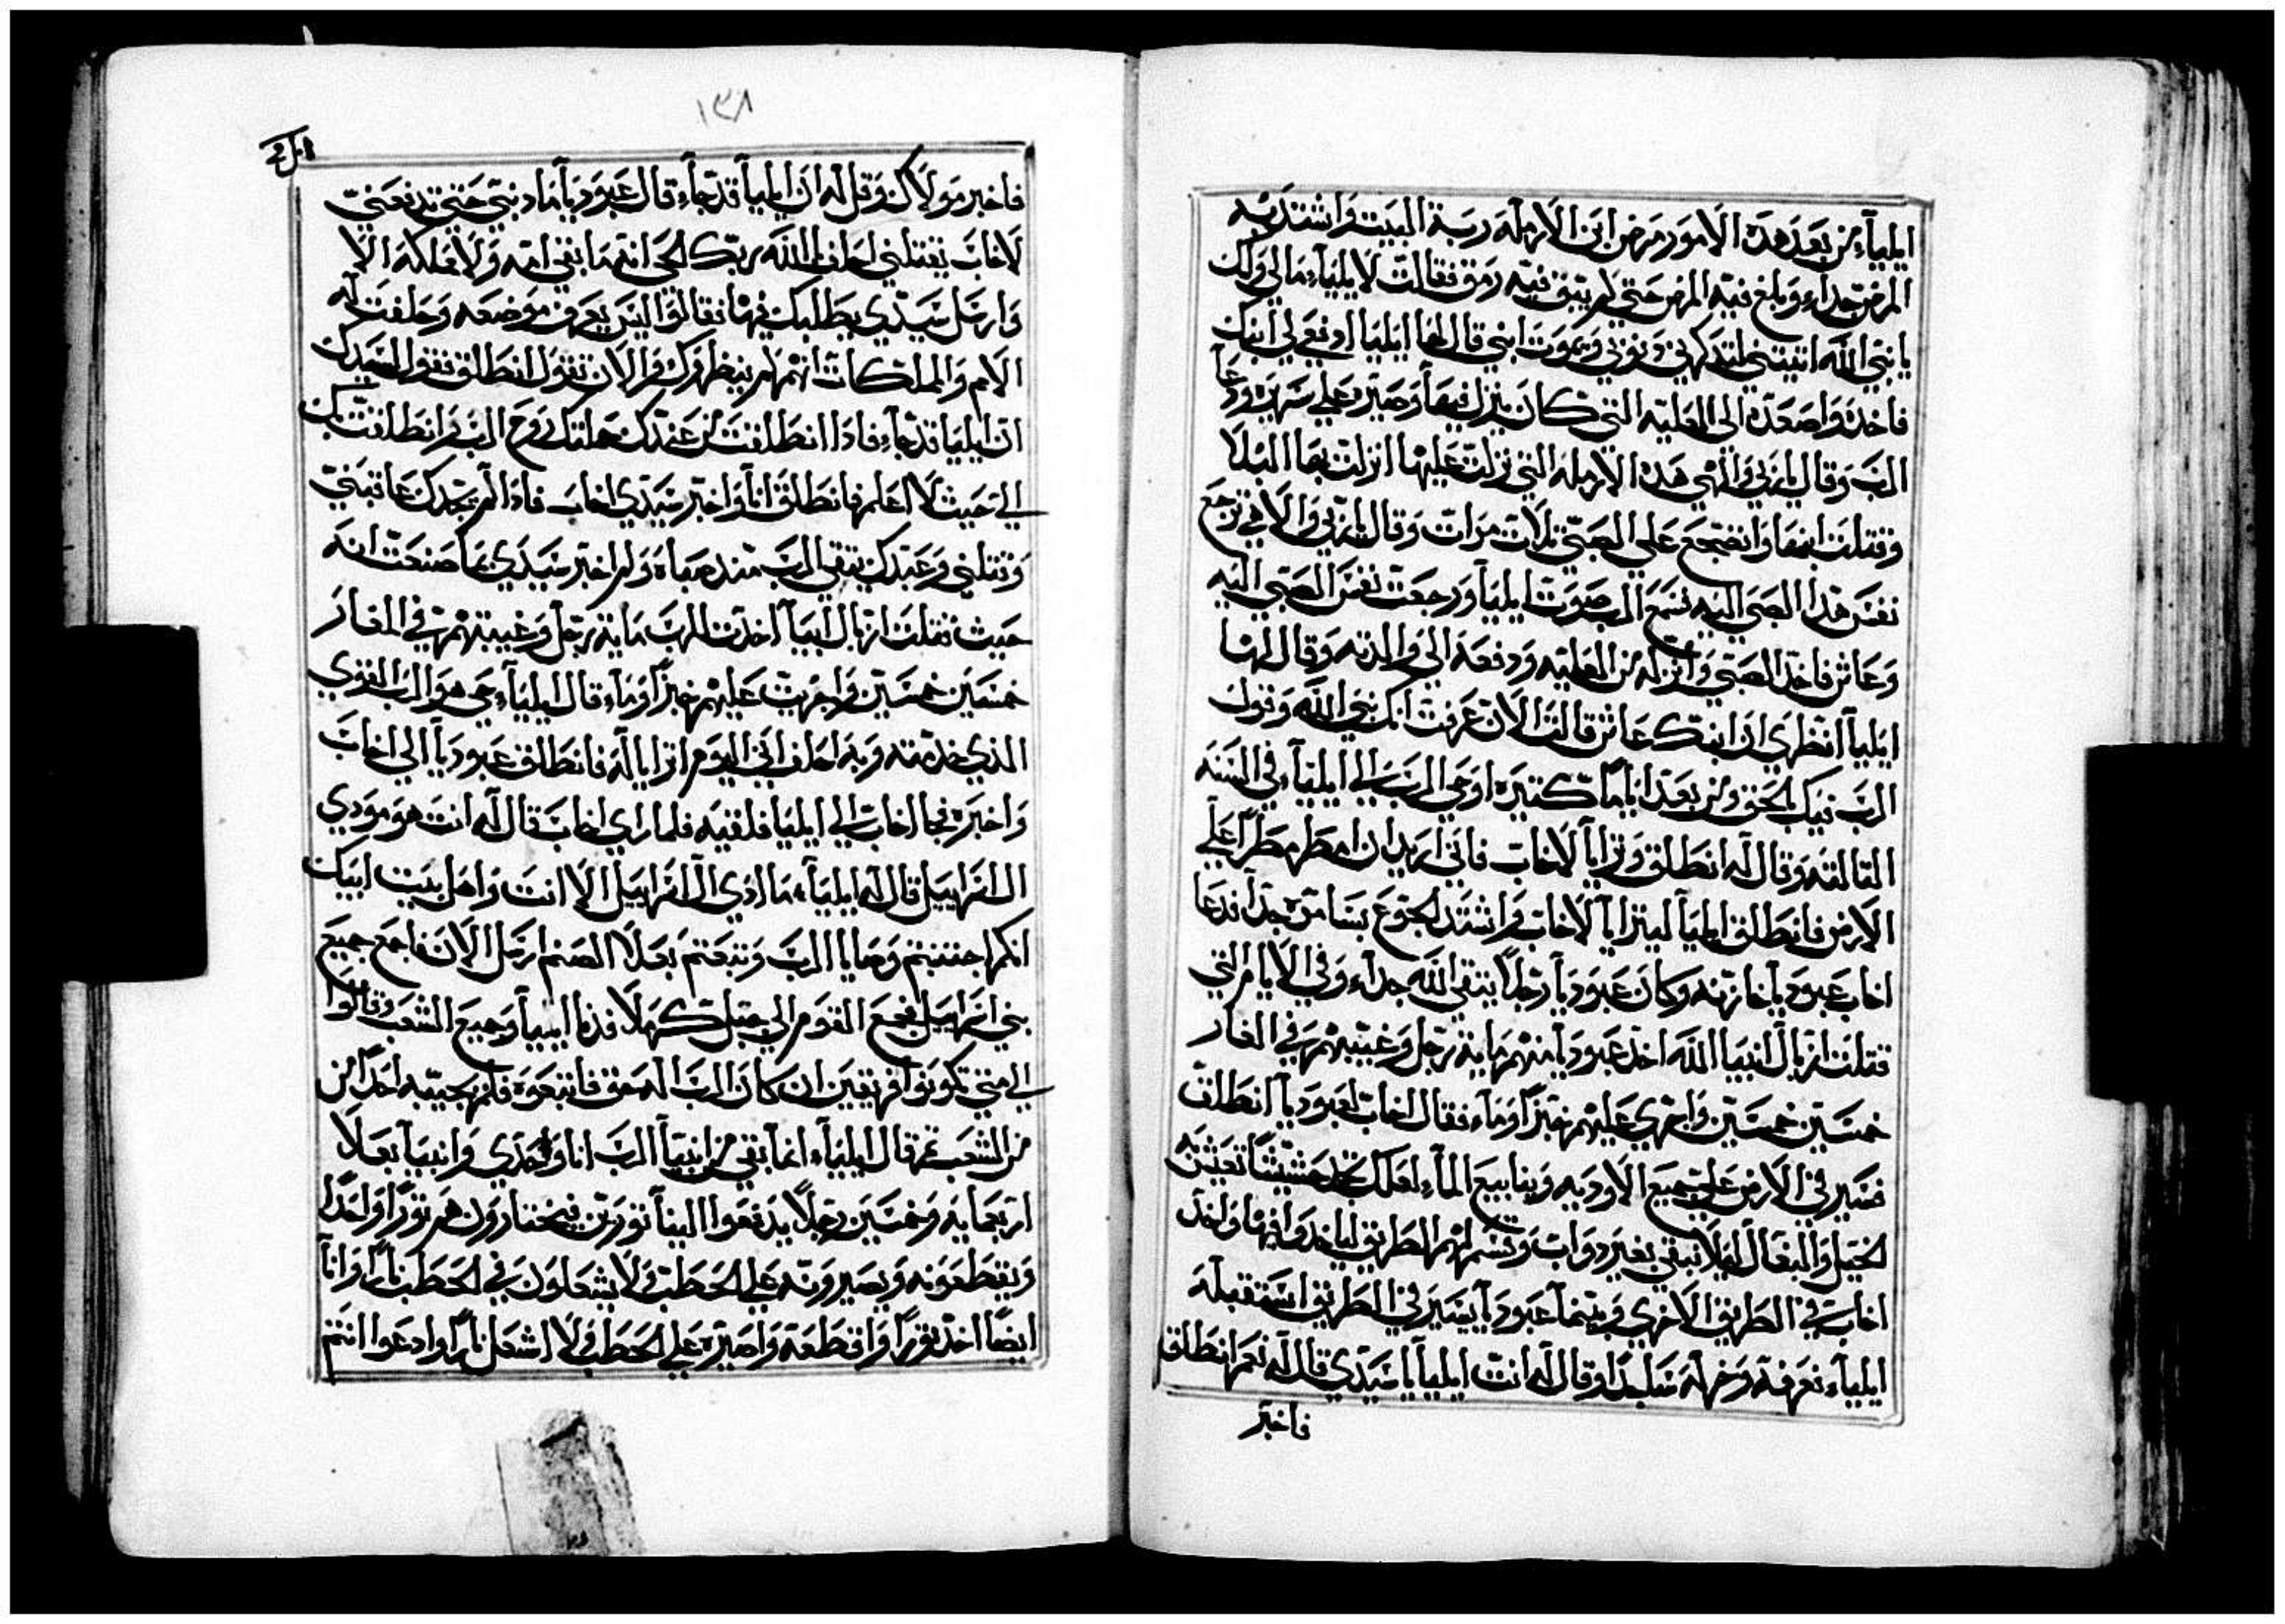 ايلياء من بعد هده الامور مرض ابن الارمله ربة البيت واشتد به
المرض جداً وبلغ فيه المرض حتي لم يبق فيه رمق فقالت لايلياء مالي ولك
يا نبي الله اتيتني لتدكرني دنوبي ويموت ابني قال لها ايليا ادفعي لي ابنك
فاخده واصعده الى العليه التي كان ينزل فيها وصيره علي سريره ودعا
الرب وقال يا ربي والهي هده الارمله التي نزلت عليها انزلت بها البلا
وقتلت ابنها وانضجع على الصبي تلات مرات وقال يا ربي والاهي ترجع
نفس هدا الصبي اليه فسمع الرب صوت ايليا ورجعت نفس الصبي اليه
وعاش فاخد الصبي وانزله من العليه ودفعه الى والدته وقال لها
ايليا انظري ان ابنك عاش قالت الان عرفت انك نبي الله وقول
الرب فيك الحق ومن بعد اياماً كتيره اوحي الرب الي ايلياء في السنه
التالته وقال له انطلق وترايا لاخاب فاني اريد ان امطر مطراً علي
الارض فانطلق ايليا ليترايا لاخاب واشتد الجوع بسامره جداً فدعا
اخاب عبوديا خازنه وكان عبوديا رجلاً يتقي الله جداً وفي الايام التي
قتلت ازبال انبيا الله اخد عبوديا منهم ماية رجل وغيبهم في الغار
خمسين خمسين واجري عليهم خبزاً وماء فقال اخاب لعبوديا انطلق
فسير في الارض على جميع الاوديه وينابيع الماء لعلك تجد حشيشاً تعيش به
الخيل والبغال ليلا نبقي بغير دواب وقسم لهم الطريق لياخدوا فيها واخد
اخاب في الطريق الاخري وبينما عبوديا يسير في الطريق استقبله
ايلياء فعرفه وخر له ساجداً وقال له انت ايليا يا سيدي قال له نعم انطلق
فاخبر
١٣٨
فاخبر مولاك وقل له ان ايليا قد جاء قال عبوديا ما دنبي حتي تدفعني
لاخاب يقتلني احلف بالله ربك الحي انه ما بقي امه ولا مملكه الا
وارسل سيدي يطلبك فيها فقالوا ليس يعرف موضعه وحلفت له
الامم والمملكات انهم لم ينظروك والان تقول انطلق فقول لسيدك
ان ايليا قد جاء فادا انطلقت من عندك حملتك روح الرب وانطلقت بك
الي حيث لا اعلم فانطلق انا واخبر سيدي اخاب فادا لم يجدك عاقبني
وقتلني وعبدك يتقي الرب مند صباه ولم اخبر سيدي بما صنعت انه
حيث قتلت ازبال انبيا اخدت للرب ماية رجل وغيبتهم في المغار
خمسين خمسين واجريت عليهم خبزاً وماء قال ايلياء حي هو الرب القوي
الذي خدمته وبه احلف اني اليوم اترايا له فانطلق عبوديا الي اخاب
واخبره فجا اخاب الي ايليا فلقيه فلما راي اخاب قال له انت هو مودي
ال اسراييل قال له ايلياء ما ادي ال اسراييل الا انت واهل بيت ابيك
انكم اجتنبتم وصايا الرب وتبعتم بعلا الصنم ارسل الان فاجمع جميع
بني اسراييل فجمع القوم الى جبل كرملا فدنا ايليا وجميع الشعب وقالوا
الي متي تكونوا فريقين ان كان الرب اله حق فاتبعوه فلم يجيبه احداً من
من الشعب تم قال ايلياء انما بقي من انبيا الرب انا وحدي وانبيا بعلا
اربعمايه وخمسين رجلاً يدفعوا الينا تورين فيختارون هم توراً واحداً
ويقطعونه ويصيرونه علي الحطب ولا يشعلون في الحطب ناراً وانا
ايضاً اخد توراً واقطعه واصيره علي الحطب ولا اشعل ناراً وادعوا انتم